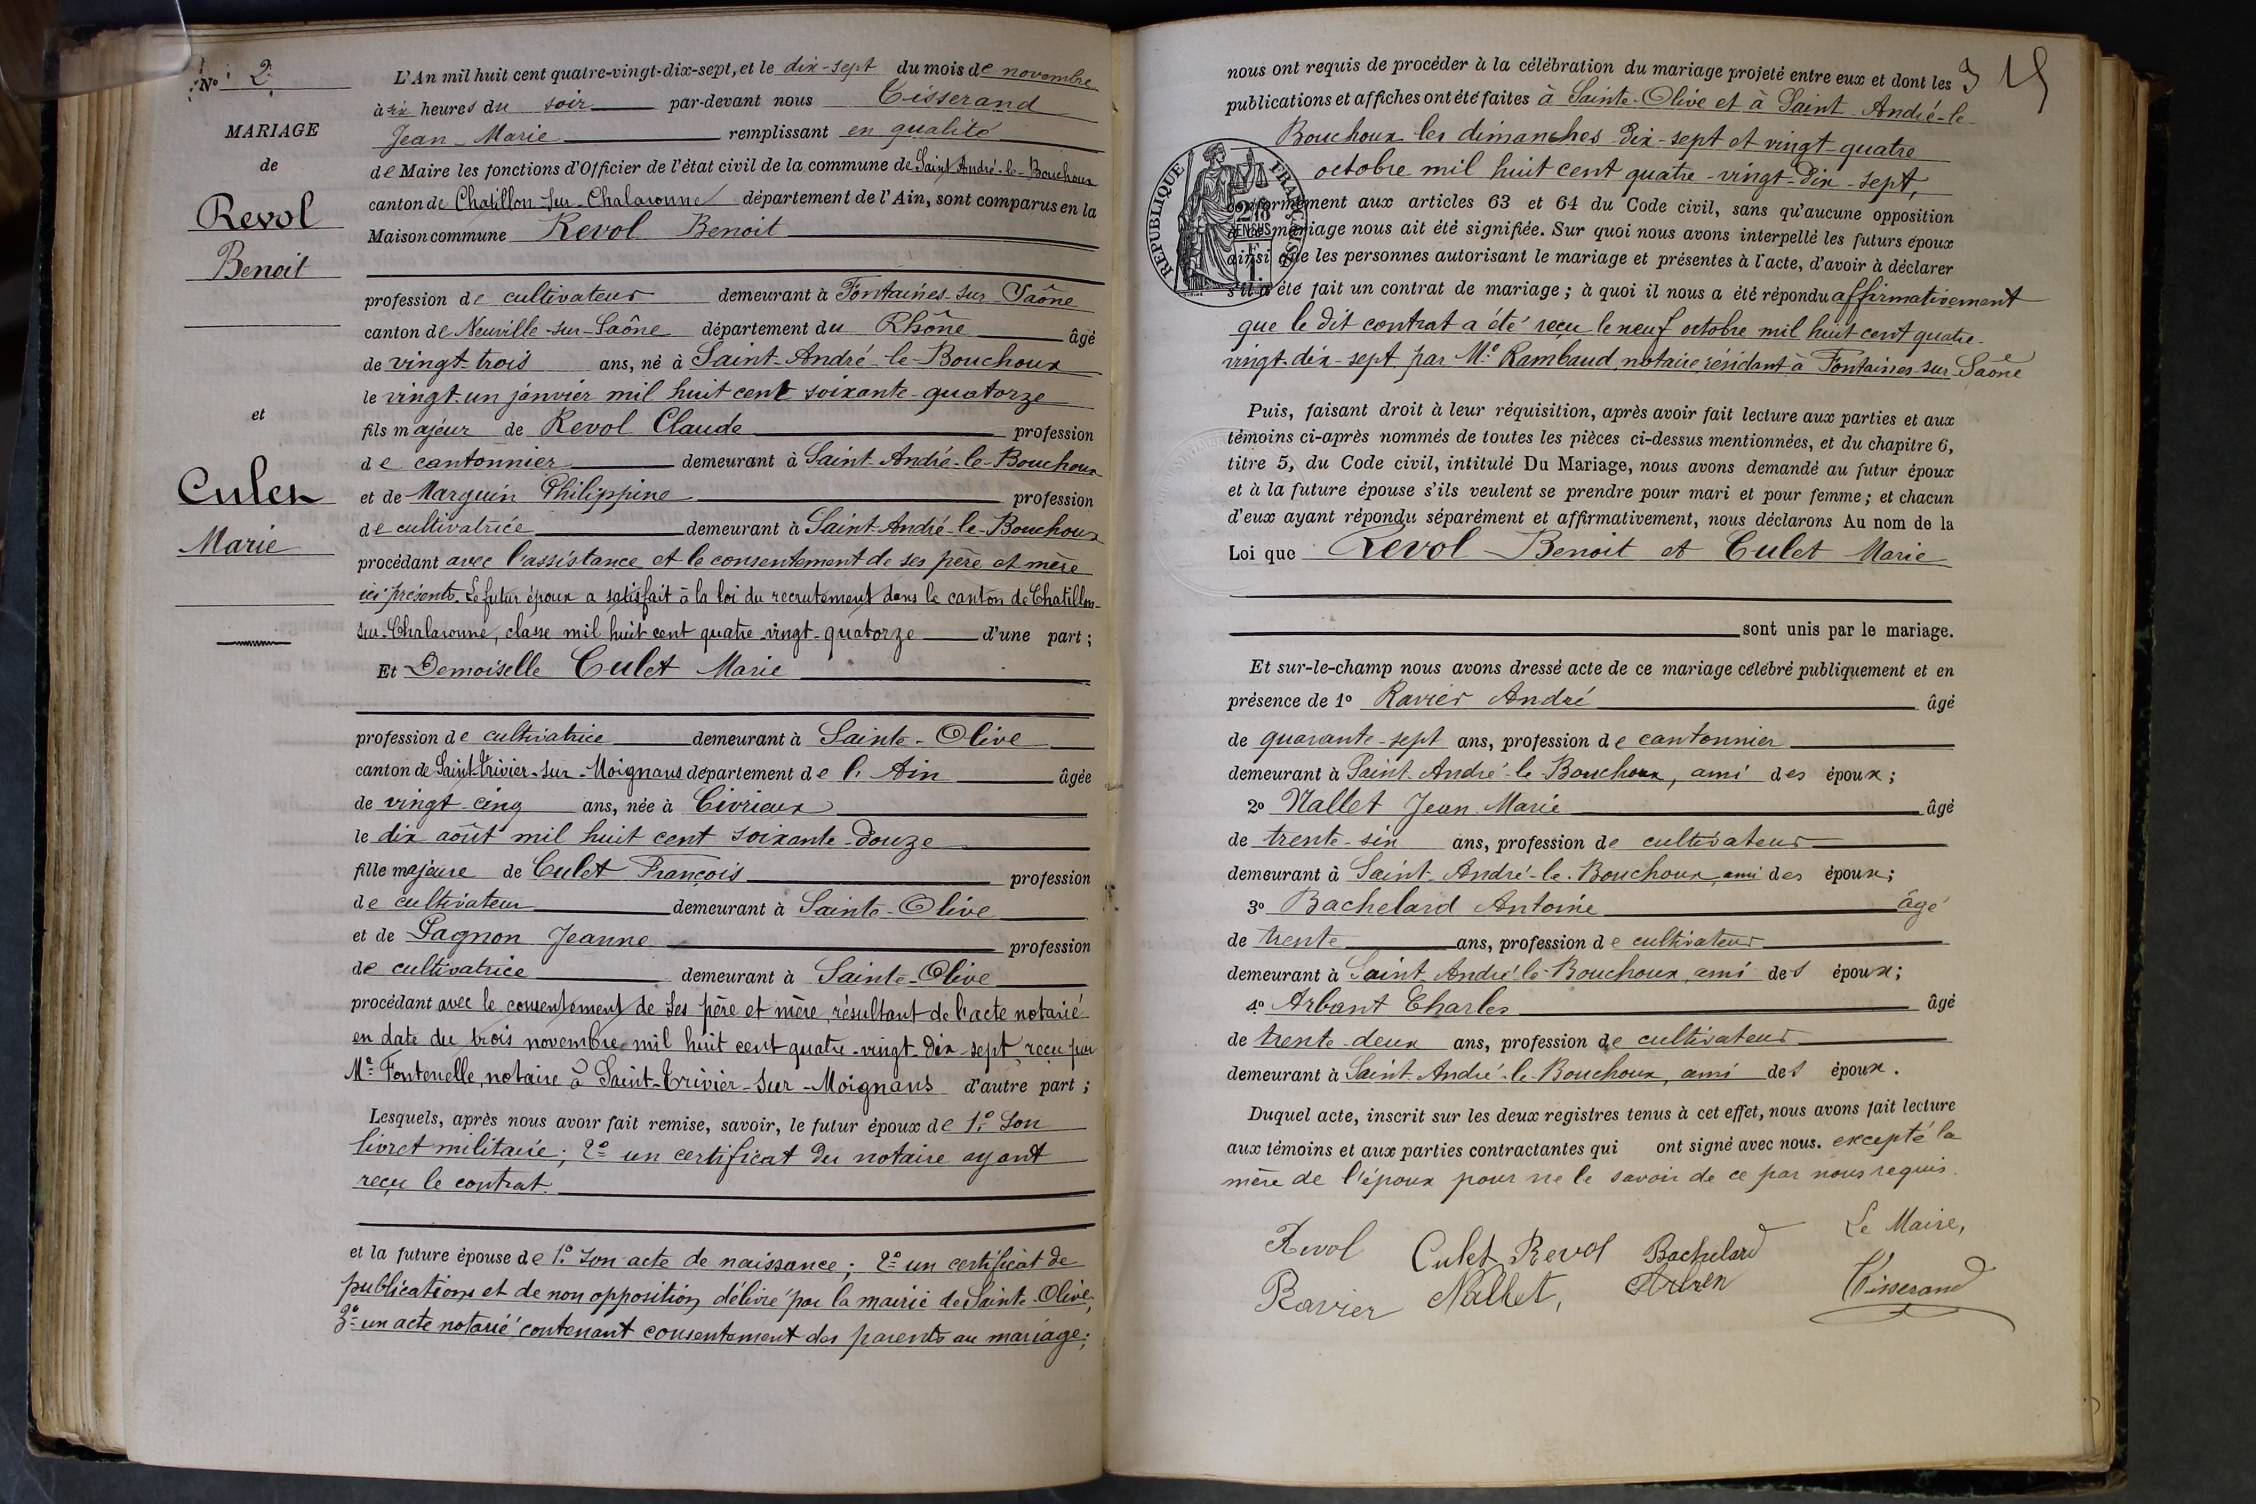 N° 2
MARIAGE
de
Revol
Benoit
et
Culet
Marie
L'An mil huit cent quatre-vingt-dix-sept, et le dix-sept du mois de novembre
à six heures du soir par-devant nous Tisserand
Jean Marie remplissant en qualité
de Maire les fonctions d'Officier de l'état civil de la commune de Saint André-le-Bouchoux
canton de Chatillon-sur-Chalaronne département de l'Ain, sont comparus en la
Maison commune Revol Benoit
profession de cultivateur demeurant à Fontaines-sur-Saône
canton de Neuville-sur-Saône département du Rhône âgé
de vingt-trois ans, né à Saint-André-le-Bouchoux
le vingt-un janvier mil huit cent soixante-quatorze
fils majeur de Revol Claude profession
de cantonnier demeurant à Saint-André-le-Bouchoux
et de Marguin Philippine profession
de cultivatrice demeurant à Saint-André-le-Bouchoux
procédant avec l'assistance et le consentement de ses père et mère
ici présents. Le futur époux a satisfait à la loi du recrutement dans le canton de Chatillon-
sur-Chalaronne, classe mil huit cent quatre-vingt-quatorze d'une part ;
Et Demoiselle Culet Marie
profession de cultivatrice demeurant à Sainte-Olive
canton de Saint-Trivier-sur-Moignans département de l'Ain âgée
de vingt-cinq ans, née à Civrieux
le dix août mil huit cent soixante-douze
fille majeure de Culet François profession
de cultivateur demeurant à Sainte-Olive
et de Pagnon Jeanne profession
de cultivatrice demeurant à Sainte-Olive
procédant avec le consentement de ses père et mère, résultant de l'acte notarié
en date du trois novembre mil huit cent quatre-vingt-dix-sept, reçu par
Me Fontenelle, notaire à Saint-Trivier-sur-Moignans d'autre part ;
Lesquels, après nous avoir fait remise, savoir, le futur époux de 1° son
livret militaire ; 2° un certificat du notaire ayant
reçu le contrat.
et la future épouse de 1° son acte de naissance ; 2° un certificat de
publications et de non opposition délivré par la mairie de Sainte-Olive ;
3° un acte notarié contenant consentement des parents au mariage ;
3 15
nous ont requis de procéder à la célébration du mariage projeté entre eux et dont les
publications et affiches ont été faites à Sainte-Olive et à Saint-André-le-
Bouchoux les dimanches dix-sept et vingt-quatre
octobre mil huit cent quatre-vingt-dix-sept,
conformément aux articles 63 et 64 du Code civil, sans qu'aucune opposition
à ce mariage nous ait été signifiée. Sur quoi nous avons interpellé les futurs époux
ainsi que les personnes autorisant le mariage et présentes à l'acte, d'avoir à déclarer
s'il a été fait un contrat de mariage ; à quoi il nous a été répondu affirmativement
que le dit contrat a été reçu le neuf octobre mil huit cent quatre-
vingt-dix-sept par Me Rambaud, notaire résidant à Fontaines-sur-Saône
REPUBLIQUE FRANÇAISE
Puis, faisant droit à leur réquisition, après avoir fait lecture aux parties et aux
témoins ci-après nommés de toutes les pièces ci-dessus mentionnées, et du chapitre 6,
titre 5, du Code civil, intitulé Du Mariage, nous avons demandé au futur époux
et à la future épouse s'ils veulent se prendre pour mari et pour femme ; et chacun
d'eux ayant répondu séparément et affirmativement, nous déclarons Au nom de la
Loi que Revol Benoit et Culet Marie
sont unis par le mariage.
Et sur-le-champ nous avons dressé acte de ce mariage célébré publiquement et en
présence de 1° Ravier André âgé
de quarante-sept ans, profession de cantonnier
demeurant à Saint-André-le-Bouchoux, ami des époux ;
2° Nallet Jean Marie âgé
de trente-six ans, profession de cultivateur
demeurant à Saint-André-le-Bouchoux, ami des époux ;
3° Bachelard Antoine âgé
de trente ans, profession de cultivateur
demeurant à Saint André-le-Bouchoux, ami des époux ;
4° Arbant Charles âgé
de trente-deux ans, profession de cultivateur
demeurant à Saint-André-le-Bouchoux, ami des époux.
Duquel acte, inscrit sur les deux registres tenus à cet effet, nous avons fait lecture
aux témoins et aux parties contractantes qui ont signé avec nous. excepté la
mère de l'époux pour ne le savoir de ce par nous requis.
Le Maire,
Revol Culet Revol Bachelard
Ravier Nallet, Tisserand